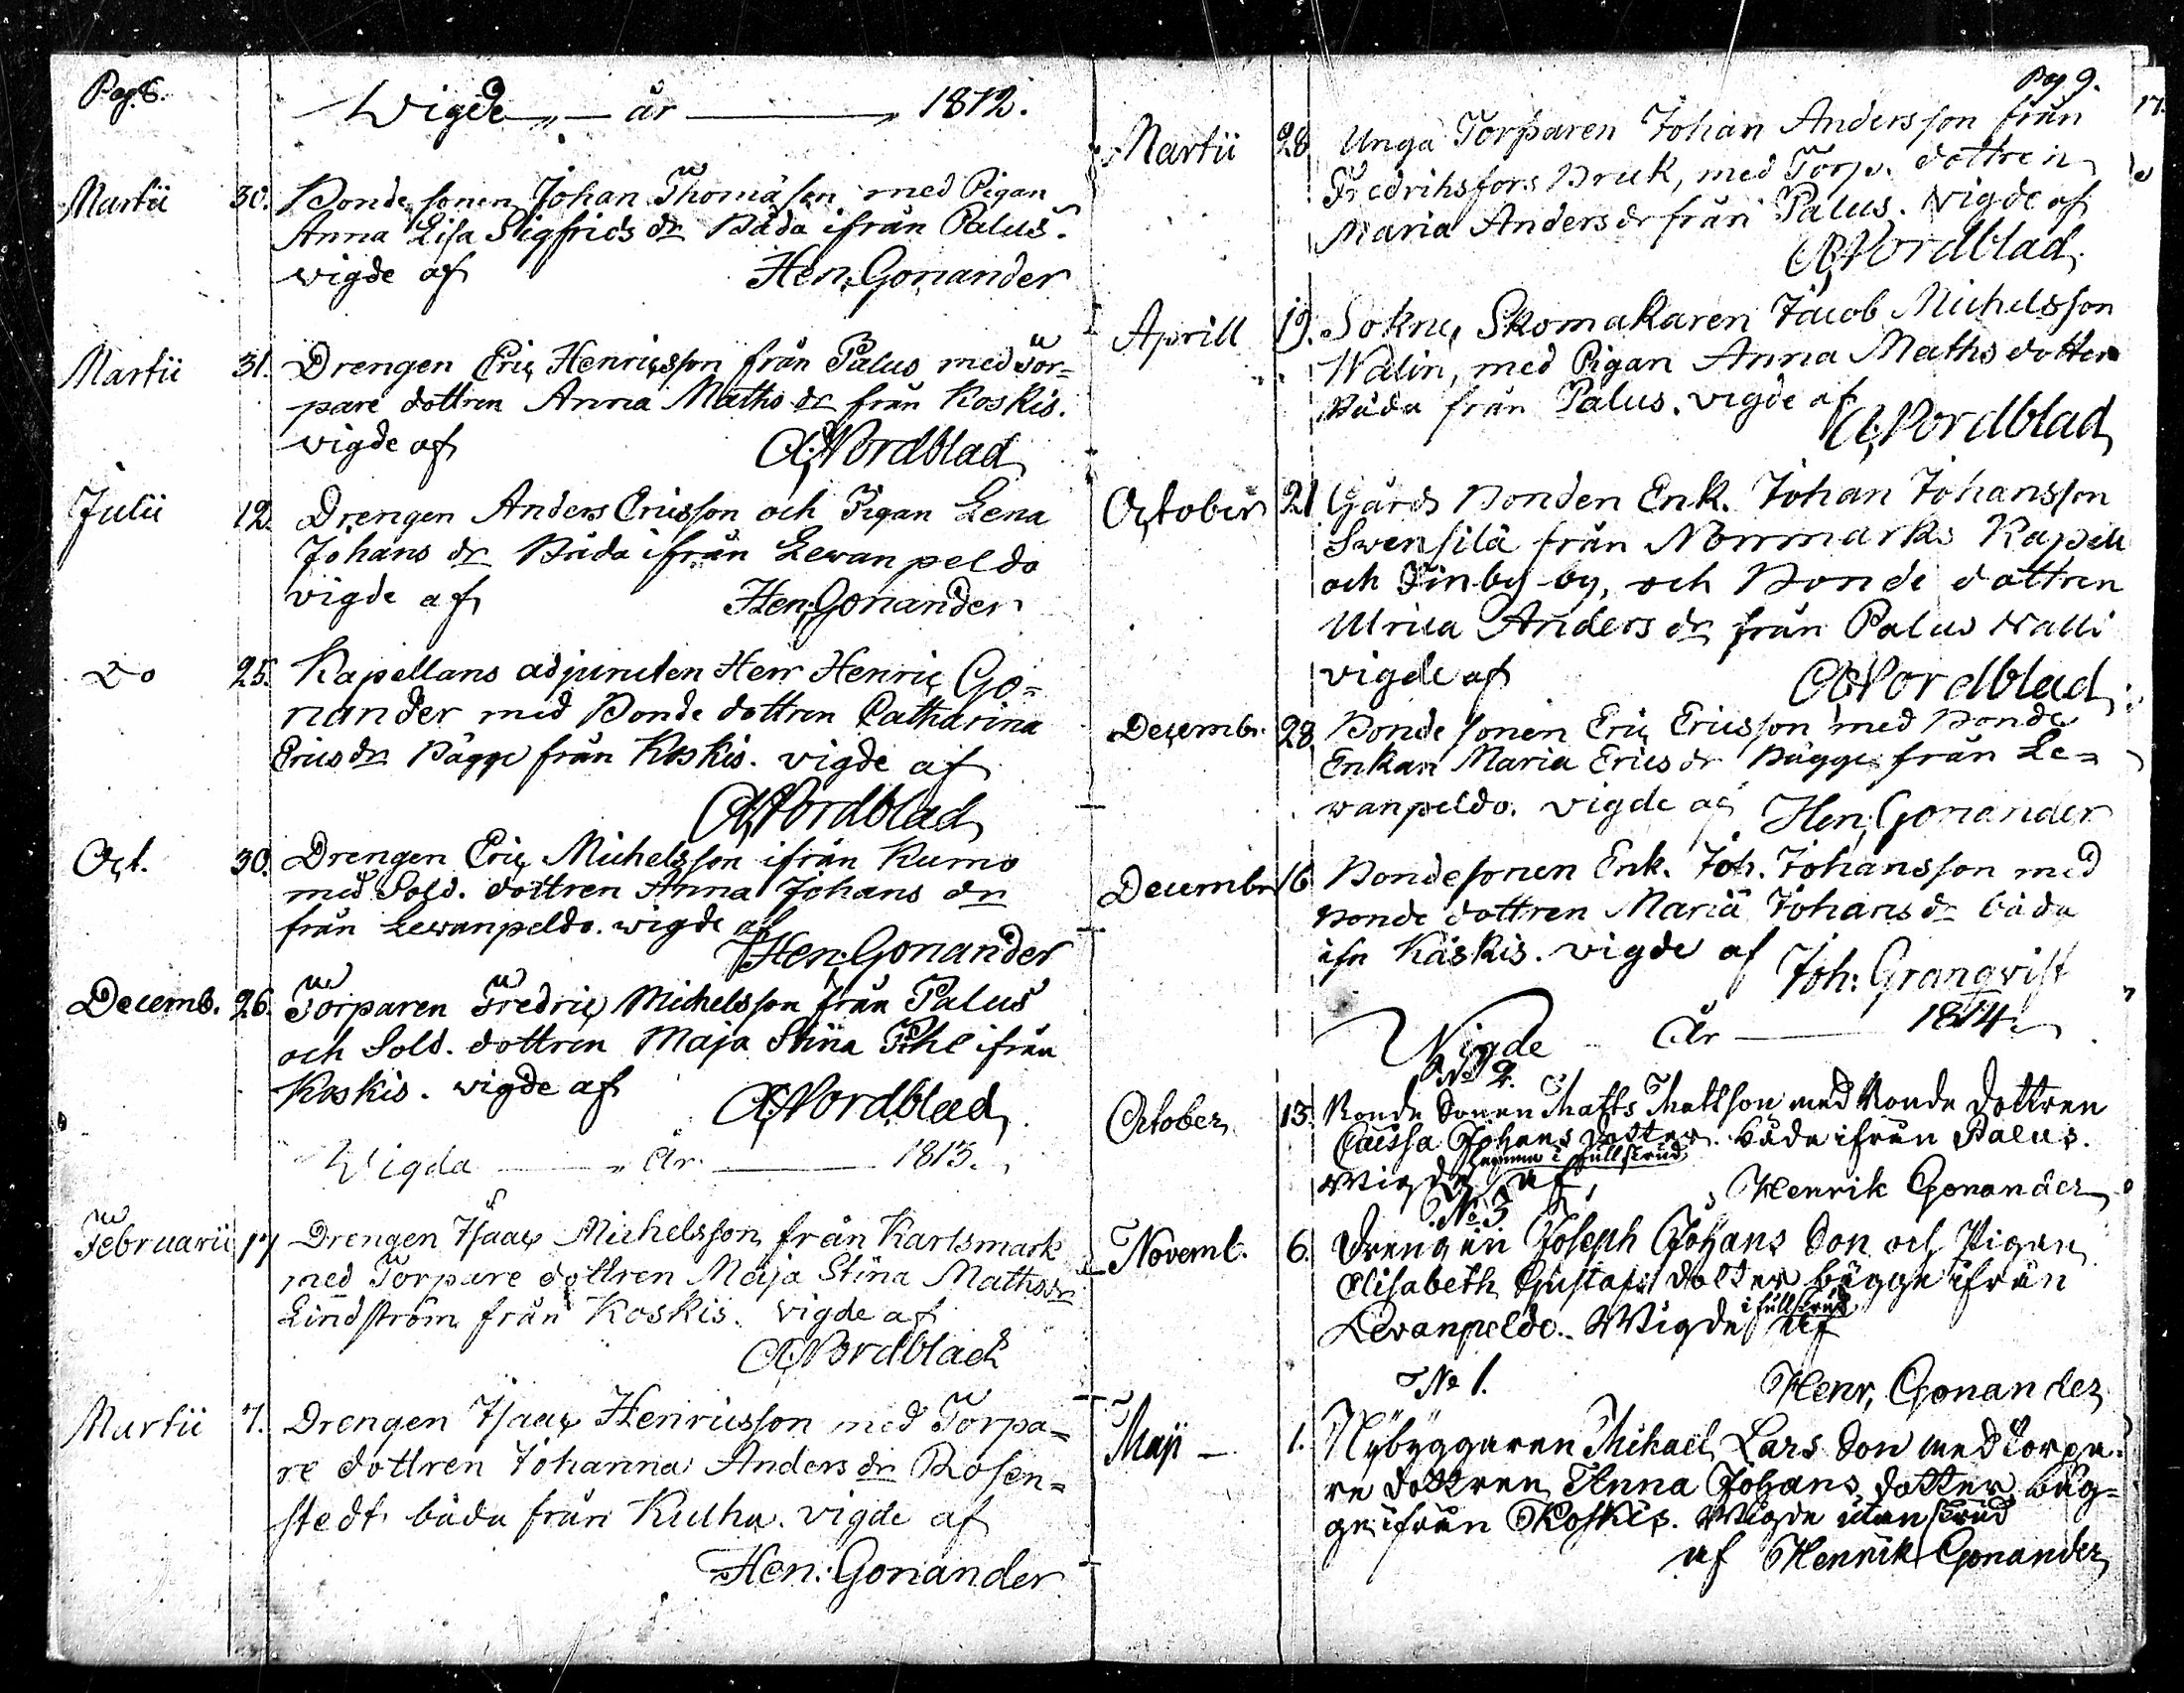 Pag. 8.
Wigde „ — år — „ 1812.
Martii 30. Bonde sonen Johan Thomäson med Pigan
Anna Lisa Sigfrids dr Båda ifrån Palus.
vigde af Hen: Gonander
Martii 31. Drengen Eric Henricsson från Palus med Tor=
pare dottren Anna Maths dr från Koskis.
vigde af A. Nordblad
Julii 12. Drengen Anders Ericsson och Pigan Lena
Johans dr Båda ifrån Lewanpeldo
vigde af Hen: Gonander
Do 25. Kapellans adjuncten Herr Henric Go=
nander med Bonde dottren Catharina
Erics dr Bägge från Koskis. vigde af
A. Nordblad
Oct. 30. Drengen Eric Michelsson ifrån Kumo
med Sold. dottren Anna Johans dr
från Lewanpeldo. wigde af
Hen: Gonander
Decemb. 26. Torparen Fredric Michelsson från Palus
och Sold. dottren Maja Stina ifrån
Koskis. vigde af A. Nordblad
Wigda — „ År — 1813.
Februarii 17 Drengen Isaac Michelsson från Karlsmark
med Torpare dottren Maja Stina Mathsdr
Lindström från Koskis. vigde af
A. Nordblad
Martii 7. Drengen Isaac Henricsson med Torpa=
re dottren Johanna Anders dr Rosen=
stedt båda från Kulha. vigde af
Hen: Gonander
Pag 9.
17.
Martii 28 Unga Torparen Johan Andersson från
Fredrihsfors Bruk, med Torp. dottren
Maria Anders dr från Palus. vigde af
A. Nordblad
Aprill 19. Sokne Skomakaren Jacob Michelsson
Walin, med Pigan Anna Maths dotter
Båda från Palus. vigde af
A. Nordblad
October 21 Gårds Bonden Enk. Johan Johansson
Swensilä från Norrmarks Kapell
och Finby by, och Bonde dottren
Ulrica Anders dr från Palus
vigde af A. Nordblad
Decembr. 28 Bonde sonen Eric Ericsson med Bonde
Enkan Maria Erics dr Bägge från Le=
wanpeldo. vigde af Hen: Gonander
Decembr 16 Bondesonen Enk. Joh. Johansson med
Bonde dottren Maria Johans dr båda
ifr Käskis. vigde af Joh: Granqvist
Wigde År — 1814
No 2.
October 13. Bonde Sonen Matts Mattson med Bonde dottren
Caissa Johans dotter. både ifrån Palus.
hemma i full skrud
Wigde af, Henrik Gonander
No 3
Novemb. 6. Drengen Joseph Johans Son och Pigan
Elisabeth Gustafs dotter bägge ifrån
i full skrud
Levanpeldo. Wigde af
No 1. Henr, Gonander
Maji — 1. Nybyggaren Mikael Lars Son med Torpa=
re dottren Anna Johans dotter bäg=
ge ifrån Koskis. Wigde utan skrud
af Henrik Gonander